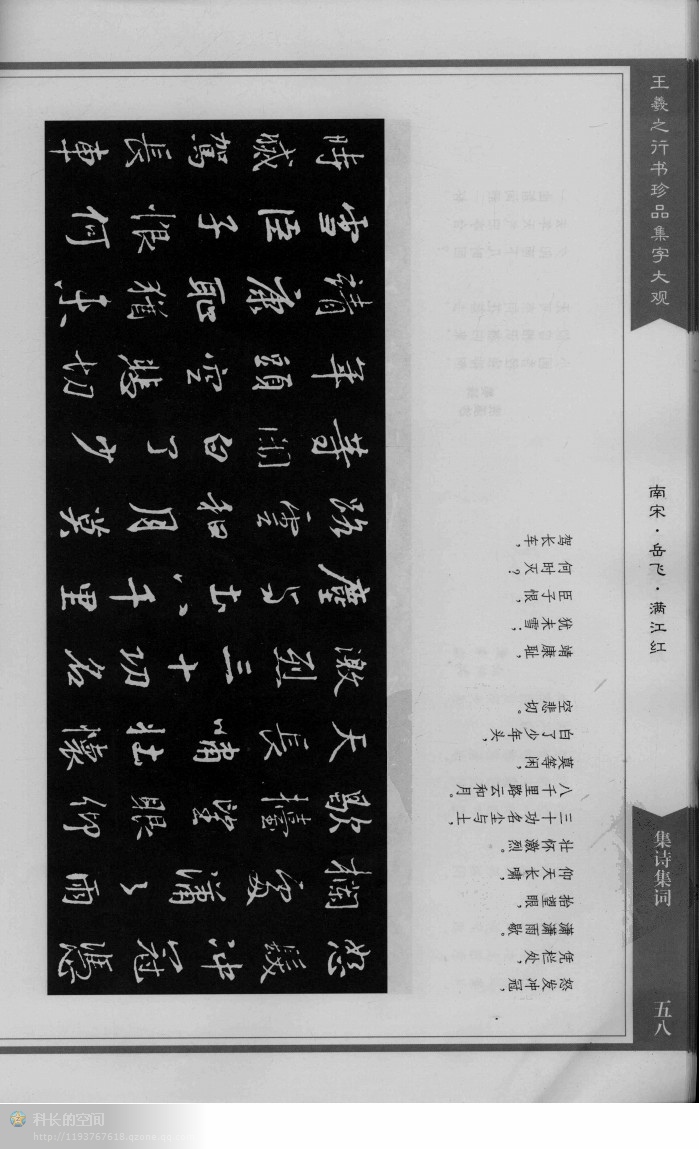 王羲之行书珍品集字大观
南宋·岳飞·满江红
集诗集词
五八
怒髮沖冠憑
欄處潇々雨
歇擡望眼仰
天長嘯壯懷
激烈三十功名
塵与土八千里
路雲和月莫
等閑白了少
年頭空悲切
靖康恥猶未
雪臣子恨何
時滅駕長車
怒发冲冠，
凭栏处，
潇潇雨歇。
抬望眼，
仰天长啸，
壮怀激烈。
三十功名尘与土，
八千里路云和月。
莫等闲，
白了少年头，
空悲切。
靖康耻，
犹未雪；
臣子恨，
何时灭？
驾长车，
科长的空间
http://1193767618.qzone.qq.com